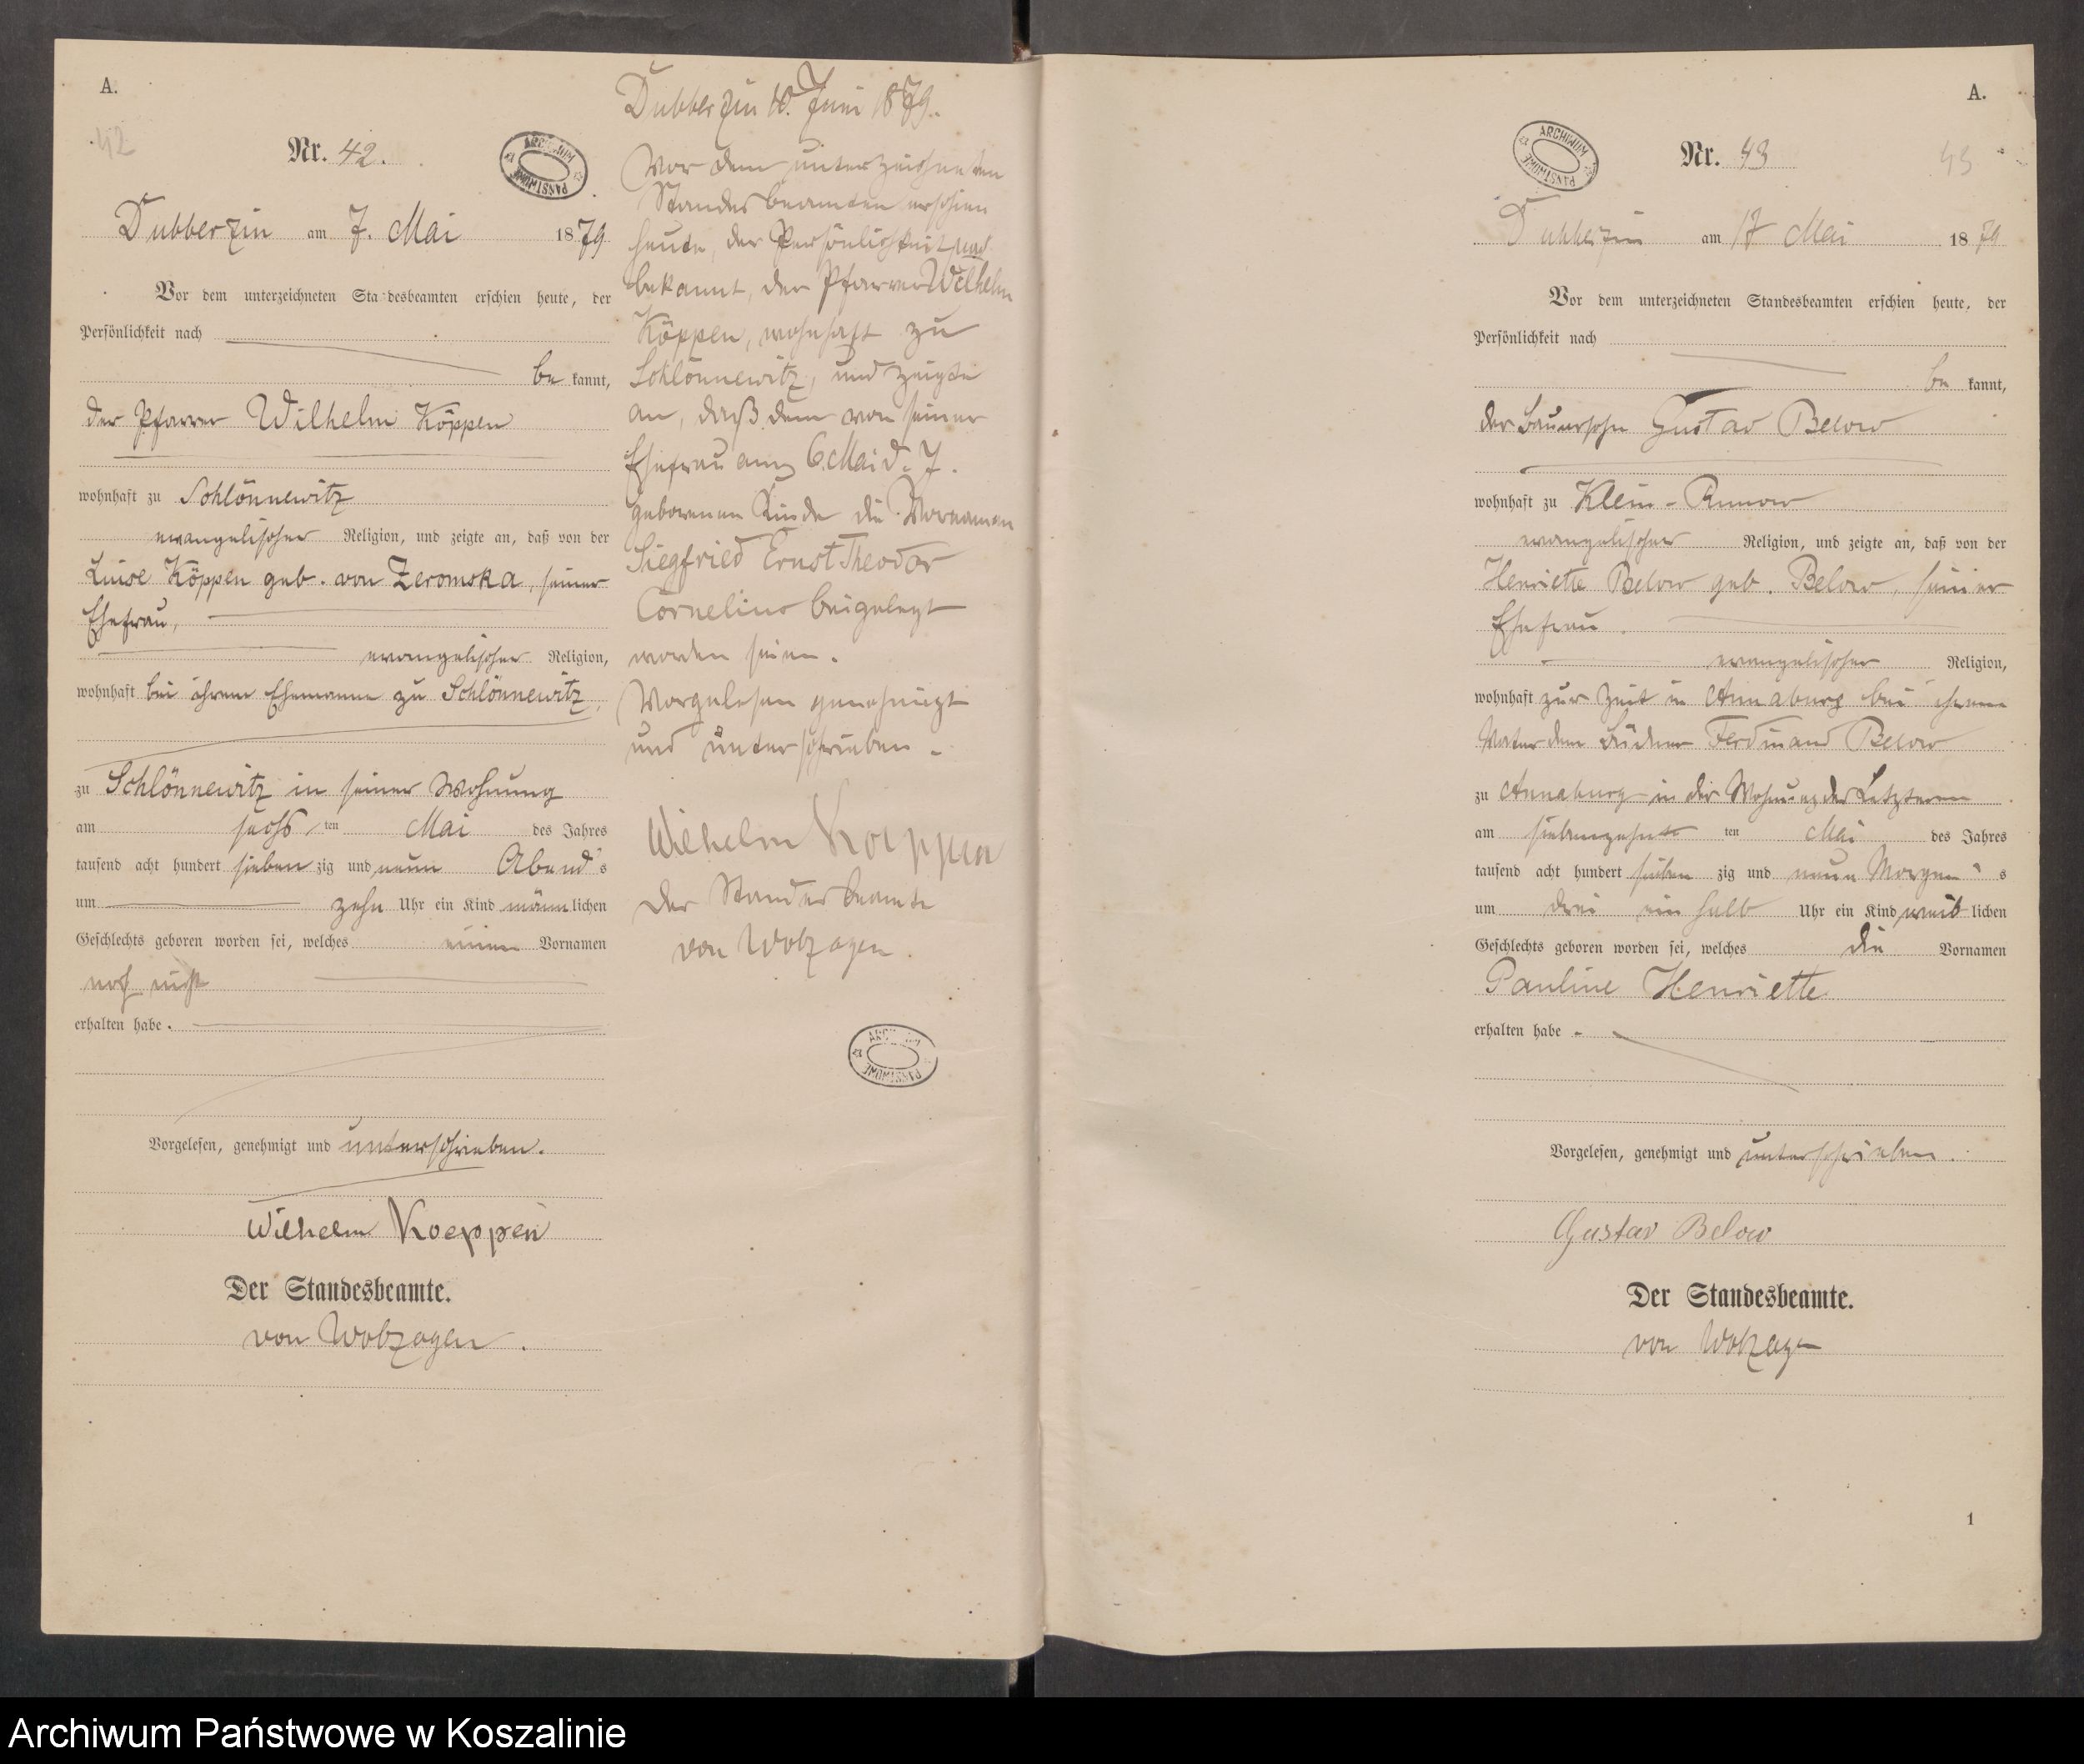 A.
42
Nr. 42.
ARCHIWUM PAŃSTWOWE
Dubberzin am 7. Mai 1879
Vor dem unterzeichneten Sta desbeamten erschien heute, der
Persönlichkeit nach
be kannt,
der Pfarrer Wilhelm Köppen
wohnhaft zu Schlönnewitz
evangelischer Religion, und zeigte an, daß von der
Luise Köppen geb. von Zeromska, seiner
Ehefrau,
evangelischer Religion,
wohnhaft bei ihrem Ehemanne zu Schlönnewitz,
zu Schlönnewitz in seiner Wohnung
am sechs ten Mai des Jahres
tausend acht hundert sieben zig und neun Abend's
um zehn Uhr ein Kind männlichen
Geschlechts geboren worden sei, welches einen Vornamen
noch nicht
erhalten habe.
Vorgelesen, genehmigt und unterschrieben.
Wilhelm Koeppen
Der Standesbeamte.
von Wobzagen.
Dubberzin 10. Juni 1879.
Vor dem unterzeichneten
Standesbeamten erschien
heute, der Persönlichkeit nach
bekannt, der Pfarrer Wilhelm
Köppen, wohnhaft zu
Schlönnewitz, und zeigte
an, daß dem von seiner
Ehefrau am 6. Mai d. J.
geborenen Kinde die Vornamen
Siegfried Ernst Theodor
Cornelius beigelegt
worden seien.
Vorgelesen genehmigt
und unterschrieben.
Wilhelm Koeppen
Der Standesbeamte
von Wobzagen
ARCHIWUM PAŃSTWOWE
A.
ARCHIWUM PAŃSTWOWE
Nr. 43
43
Dubberzin am 17 Mai 1879
Vor dem unterzeichneten Standesbeamten erschien heute, der
Persönlichkeit nach
be kannt,
der Bauersohn Gustav Below
wohnhaft zu Klein-Runow
evangelischer Religion, und zeigte an, daß von der
Henriette Below geb. Below, seiner
Ehefrau.
evangelischer Religion,
wohnhaft zur Zeit in Annaburg bei ihrem
Vater dem Büdner Ferdinand Below
zu Annaburg in der Wohnung des Letzteren
am siebenzehnt ten Mai des Jahres
tausend acht hundert sieben zig und neun Morgen's
um drei ein halb Uhr ein Kind weib lichen
Geschlechts geboren worden sei, welches die Vornamen
Pauline Henriette
erhalten habe.
Vorgelesen, genehmigt und unterschrieben.
Gustav Below
Der Standesbeamte.
von Wobzagen
1
Archiwum Państwowe w Koszalinie